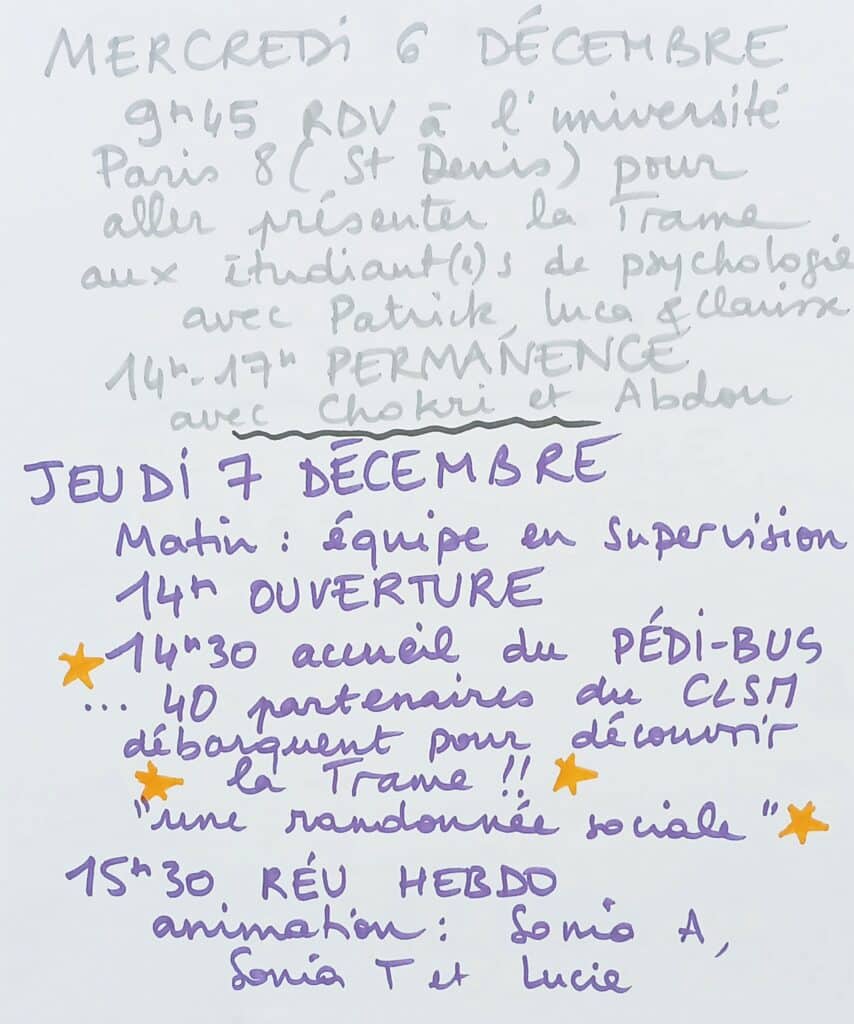 MERCREDI 6 DÉCEMBRE
9h45 RDV à l'université
Paris 8 (St Denis) pour
aller présenter la Trame
aux étudiant(e)s de psychologie
avec Patrick, Luca & Clarisse
14h-17h PERMANENCE
avec Chokri et Abdou
JEUDI 7 DÉCEMBRE
Matin : équipe en supervision
14h OUVERTURE
14h30 accueil du PÉDI-BUS
... 40 partenaires du CLSM
débarquent pour découvrir
la Trame !!
"une randonnée sociale"
15h30 RÉU HEBDO
animation : Sonia A,
Sonia T et Lucie